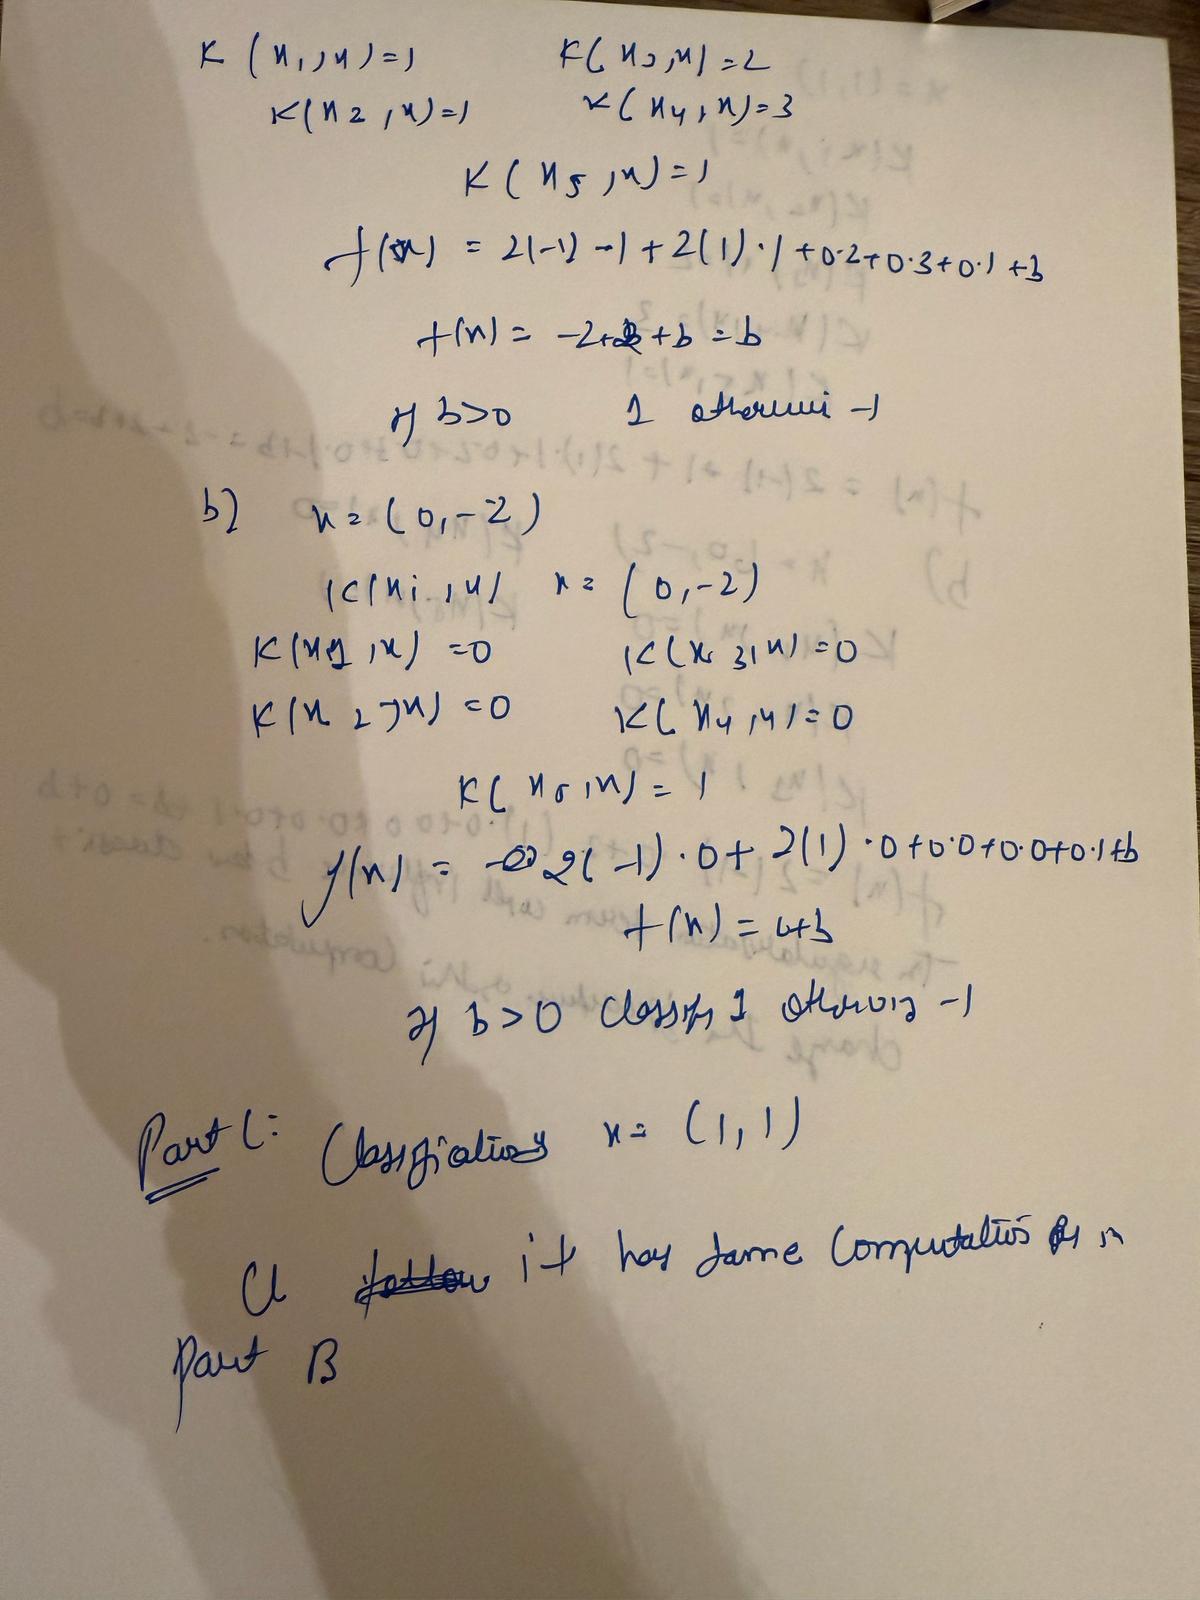 K(x1,x)=1 K(x3,x)=2
K(x2,x)=1 K(x4,x)=3
K(x5,x)=1
f(x) = 2(-1)-1+2(1)·1+0·2+0·3+0·1+b
f(x) = -2+2+b=b
if b>0 1 otherwise -1
b) x=(0,-2)
K(xi,x) x=(0,-2)
K(x1,x)=0 K(x3,x)=0
K(x2,x)=0 K(x4,x)=0
K(x5,x)=1
f(x) = 2(-1)·0+2(1)·0+0·0+0·0+0·1+b
f(x)=0+b
if b>0 classify 1 otherwis -1
Part C: Classification x=(1,1)
it has same computation in
Part B